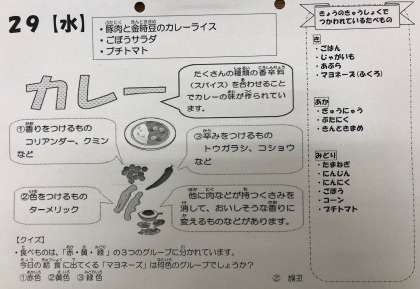 29【水】
・豚肉と金時豆のカレーライス
・ごぼうサラダ
・プチトマト
カレー
たくさんの種類の香辛料
（スパイス）を合わせること
でカレーの味が作られてい
ます。
①香りをつけるもの
コリアンダー、クミン
など
③辛みをつけるもの
トウガラシ、コショウ
など
②色をつけるもの
ターメリック
他に肉などが持つくさみを
消して、おいしそうな香りに
変えるものなどがあります。
【クイズ】
・食べものは、「赤・黄・緑」の３つのグループに分かれています。
今日の給食に出てくる「マヨネーズ」は何色のグループでしょうか？
①赤色 ②黄色 ③緑色
きょうのきゅうしょくで
つかわれているたべもの
き
・ごはん
・じゃがいも
・あぶら
・マヨネーズ（ふくろ）
あか
・ぎゅうにゅう
・ぶたにく
・きんときまめ
みどり
・たまねぎ
・にんじん
・にんにく
・ごぼう
・コーン
・プチトマト